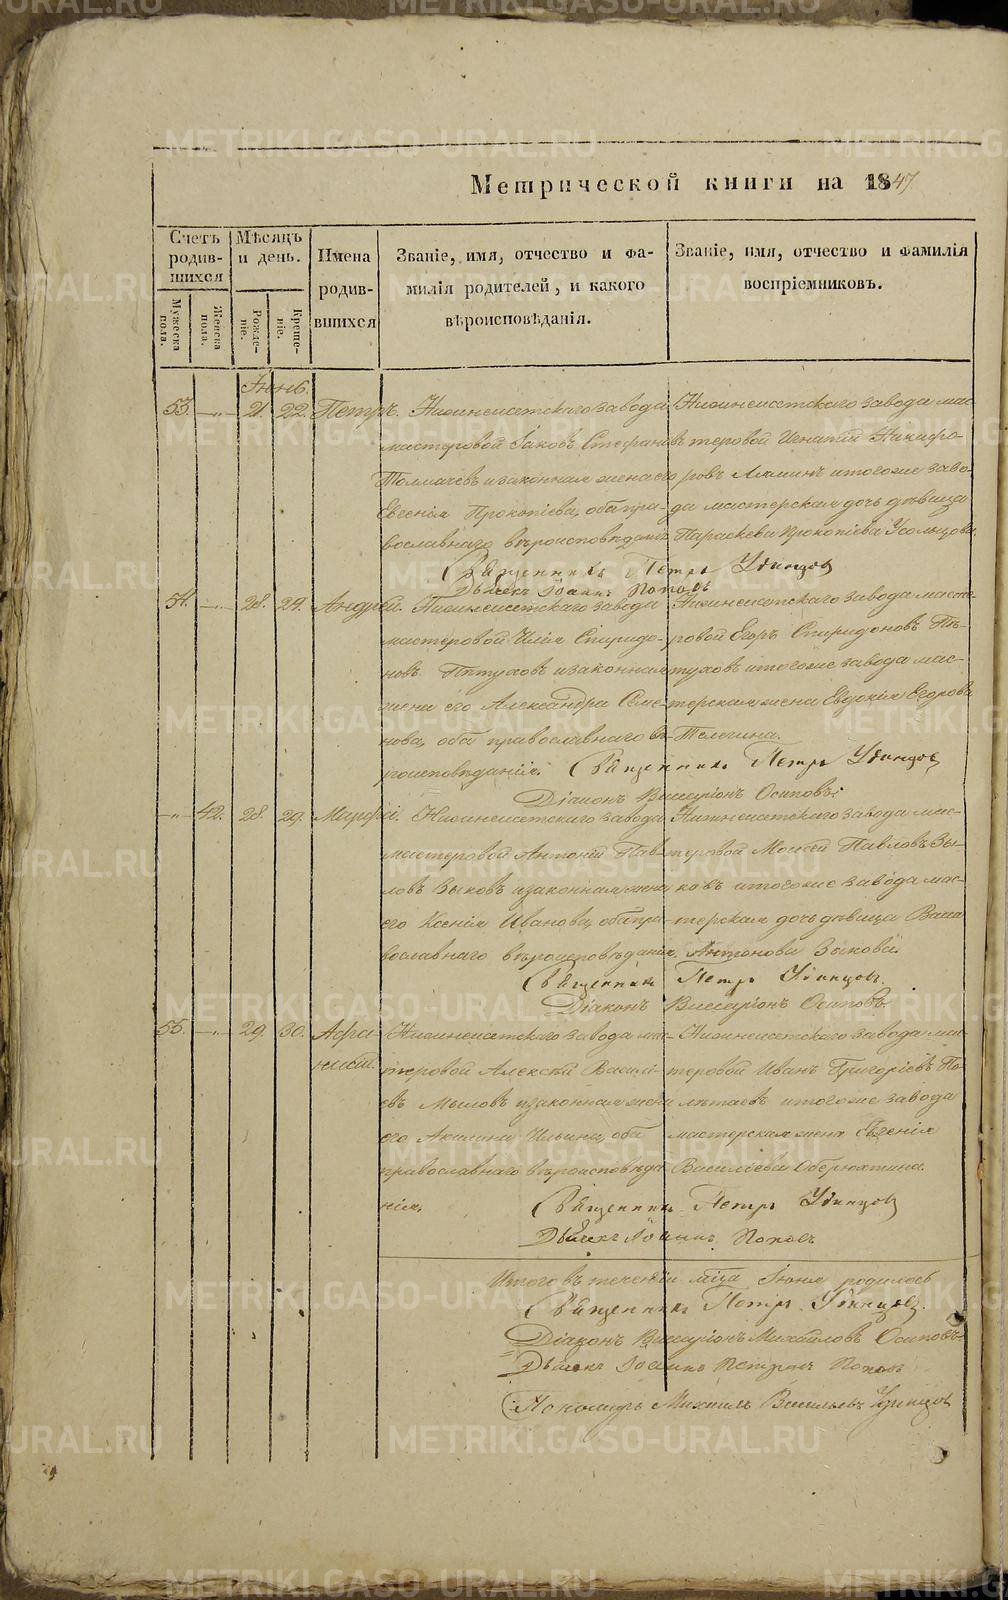 Метрической книги на 1847
Счетъ родив-шихся
Мужеска пола.
Женска пола.
Мѣсяцъ и день.
Рожде-ніе.
Креще-ніе.
Имена
родив-
вшихся
Званіе, имя, отчество и фа-
милія родителей, и какого
вѣроисповѣданія.
Званіе, имя, отчество и фамилія
воспріемниковъ.
Іюнь.
53. —„— 21. 22. Петръ.
Нижнеисетскаго завода
мастеровой Іаковъ Стефановъ
Толмачевъ и законная жена его
Евгенія Прокопіева, оба пра-
вославнаго вѣроисповѣданія
Нижнеисетскаго завода мас-
теровой Игнатій Никифо-
ровъ Ляминъ и тогоже заво-
да мастерская дочь дѣвица
Параскева Прокопіева Усольцова.
Священникъ Петръ Удинцов
Дьячекъ Іоаннъ Поповъ
54. —„— 28. 29. Андрей.
Нижнеисетскаго завода
мастеровой Илія Спиридо-
новъ Пѣтуховъ и законная
жена его Александра Семе-
нова, оба православнаго вѣ-
роисповѣданія.
Нижнеисетскаго завода масте-
ровой Егоръ Спиридоновъ Пѣ-
туховъ и тогоже завода мас-
терская жена Евдокія Егорова
Телегина.
Священникъ Петръ Удинцов
Діаконъ Виссаріонъ Осиповъ.
—„— 42. 28. 29.
Нижнеисетскаго завода
мастеровой Антоній Пав-
ловъ Зыковъ и законная жена
его Ксенія Иванова, оба пра-
вославнаго вѣроисповѣданія.
Нижнеисетскаго завода мас-
теровой Моисей Павловъ Зы-
ковъ и тогоже завода мас-
терская дочь дѣвица Васса
Антонова Зыкова.
Священникъ Петръ Удинцов.
Діаконъ Виссаріонъ Осиповъ.
55. —„— 29. 30.
Нижнеисетскаго завода мас-
теровой Алексѣй Василі-
евъ Мыловъ и законная жена
его Акилина Ильина, оба
православнаго вѣроисповѣда
нія.
Нижнеисетскаго завода мас-
теровой Иванъ Григоріевъ По-
лѣтаевъ и тогоже завода
мастерская жена Евгенія
Василіева Оберюхтина.
Священникъ Петръ Удинцов
Дьячекъ Іоаннъ Поповъ
Итого въ теченіи мѣсца Іюня родилось
Священникъ Петръ Удинцов.
Діаконъ Виссаріонъ Михайловъ Осиповъ
Дьячекъ Іоаннъ Петровъ Поповъ
Пономарь Михаилъ Васильевъ Удинцов
METRIKI.GASO-URAL.RU